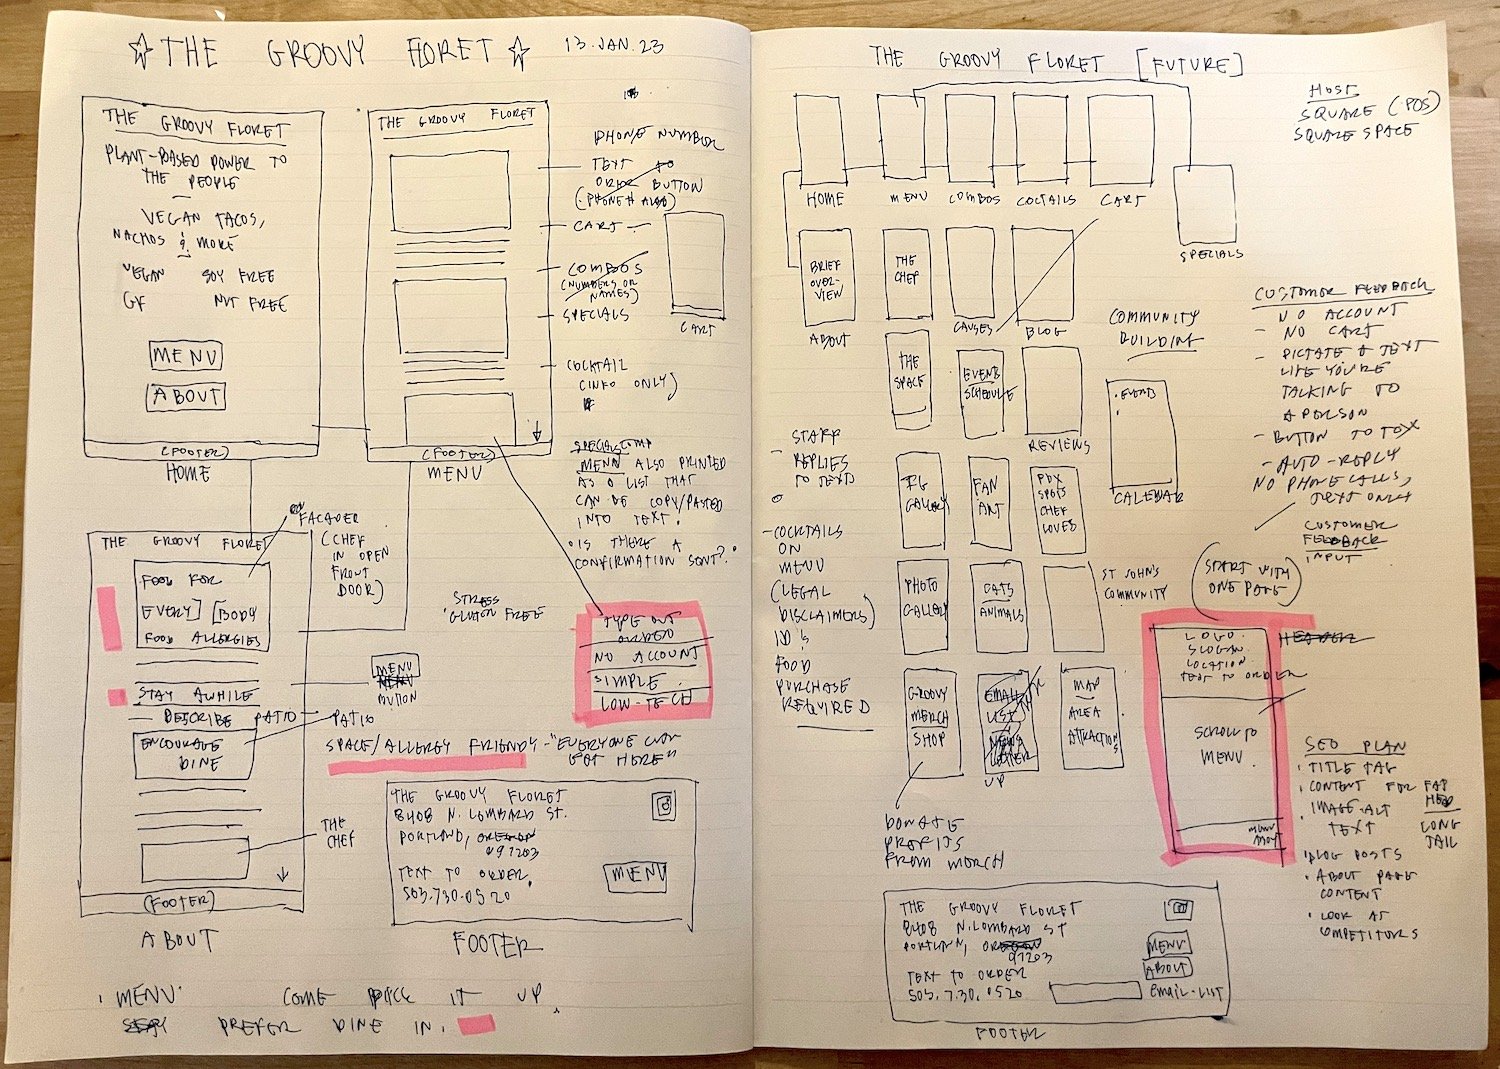 ☆ THE GROOVY FLORET ☆
13.JAN.23
THE GROOVY FLORET
PLANT-BASED POWER TO
THE PEOPLE
—
VEGAN TACOS,
NACHOS & MORE
VEGAN SOY FREE
GF NUT FREE
MENU
ABOUT
(FOOTER)
HOME
THE GROOVY FLORET
(FOOTER)
MENU
PHONE NUMBER
TEXT TO
ORDER BUTTON
(PHONE # ALSO)
CART
COMBOS
(NUMBERS OR
NAMES)
SPECIALS
COCKTAIL
(INFO ONLY)
CART
MENU ALSO PRINTED
AS A LIST THAT
CAN BE COPY/PASTED
INTO TEXT.
• IS THERE A
CONFIRMATION SENT?
FACADE
(CHEF
IN OPEN
FRONT
DOOR)
THE GROOVY FLORET
FOOD FOR
EVERY] [BODY
FOOD ALLERGIES
STAY AWHILE
— DESCRIBE PATIO
PATIO
ENCOURAGE
DINE
THE
CHEF
(FOOTER)
ABOUT
STRESS
GLUTEN FREE
MENU
MENU
BUTTON
TYPE OUT
ORDER
NO ACCOUNT
SIMPLE
LOW-TECH
SPACE/ALLERGY FRIENDLY - "EVERYONE CAN
GET HERE"
THE GROOVY FLORET
8408 N. LOMBARD ST.
PORTLAND, OREGON
97203
TEXT TO ORDER
503.730.0520
MENU
FOOTER
• MENU COME PICK IT UP.
PREFER DINE IN.
THE GROOVY FLORET [FUTURE]
HOST
SQUARE (POS)
SQUARE SPACE
HOME
MENU
COMBOS
COCTAILS
CART
SPECIALS
BRIEF
OVER-
VIEW
ABOUT
THE
CHEF
CAUSES
BLOG
COMMUNITY
BUILDING
THE
SPACE
EVENTS
SCHEDULE
REVIEWS
• EVENTS
CALENDAR
CUSTOMER FEEDBACK
NO ACCOUNT
- NO CART
- DICTATE A TEXT
LIKE YOU'RE
TALKING TO
A PERSON
- BUTTON TO TEXT
- AUTO-REPLY
NO PHONE CALLS,
TEXT ONLY
CUSTOMER
FEEDBACK
INPUT
- STAFF
REPLIES
TO TEXT
- COCKTAILS
ON
MENU
(LEGAL
DISCLAIMERS)
ID'S
FOOD
PURCHASE
REQUIRED
IG
GALLERY
FAN
ART
PDX
SPOTS
CHEF
LOVES
PHOTO
GALLERY
CATS
ANIMALS
ST JOHN'S
COMMUNITY
GROOVY
MERCH
SHOP
EMAIL
LIST
NEWS
LETTER
UP
MAP
AREA
ATTRACTIONS
DONATE
PROFITS
FROM MERCH
START WITH
ONE PAGE
LOGO
SLOGAN
LOCATION
TEXT TO ORDER
HEADER
SCROLL TO
MENU
MENU
ABOUT
SEO PLAN
• TITLE TAG
• CONTENT FOR FAT
HEAD
• IMAGE-ALT
TEXT
LONG
TAIL
• BLOG POSTS
• ABOUT PAGE
CONTENT
• LOOK AT
COMPETITORS
THE GROOVY FLORET
8408 N. LOMBARD ST
PORTLAND, OREGON
97203
TEXT TO ORDER
503.730.0520
MENU
ABOUT
EMAIL-LIST
FOOTER